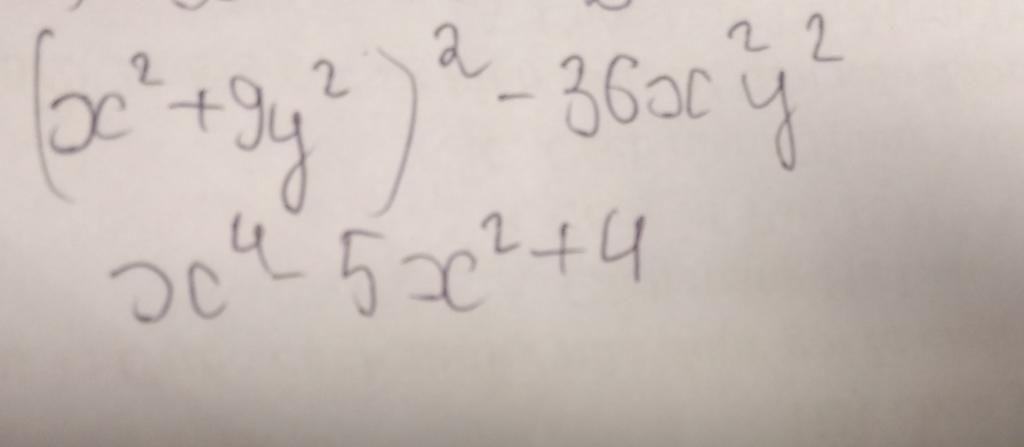 (x²+9y²)²-36x²y²
x⁴-5x²+4